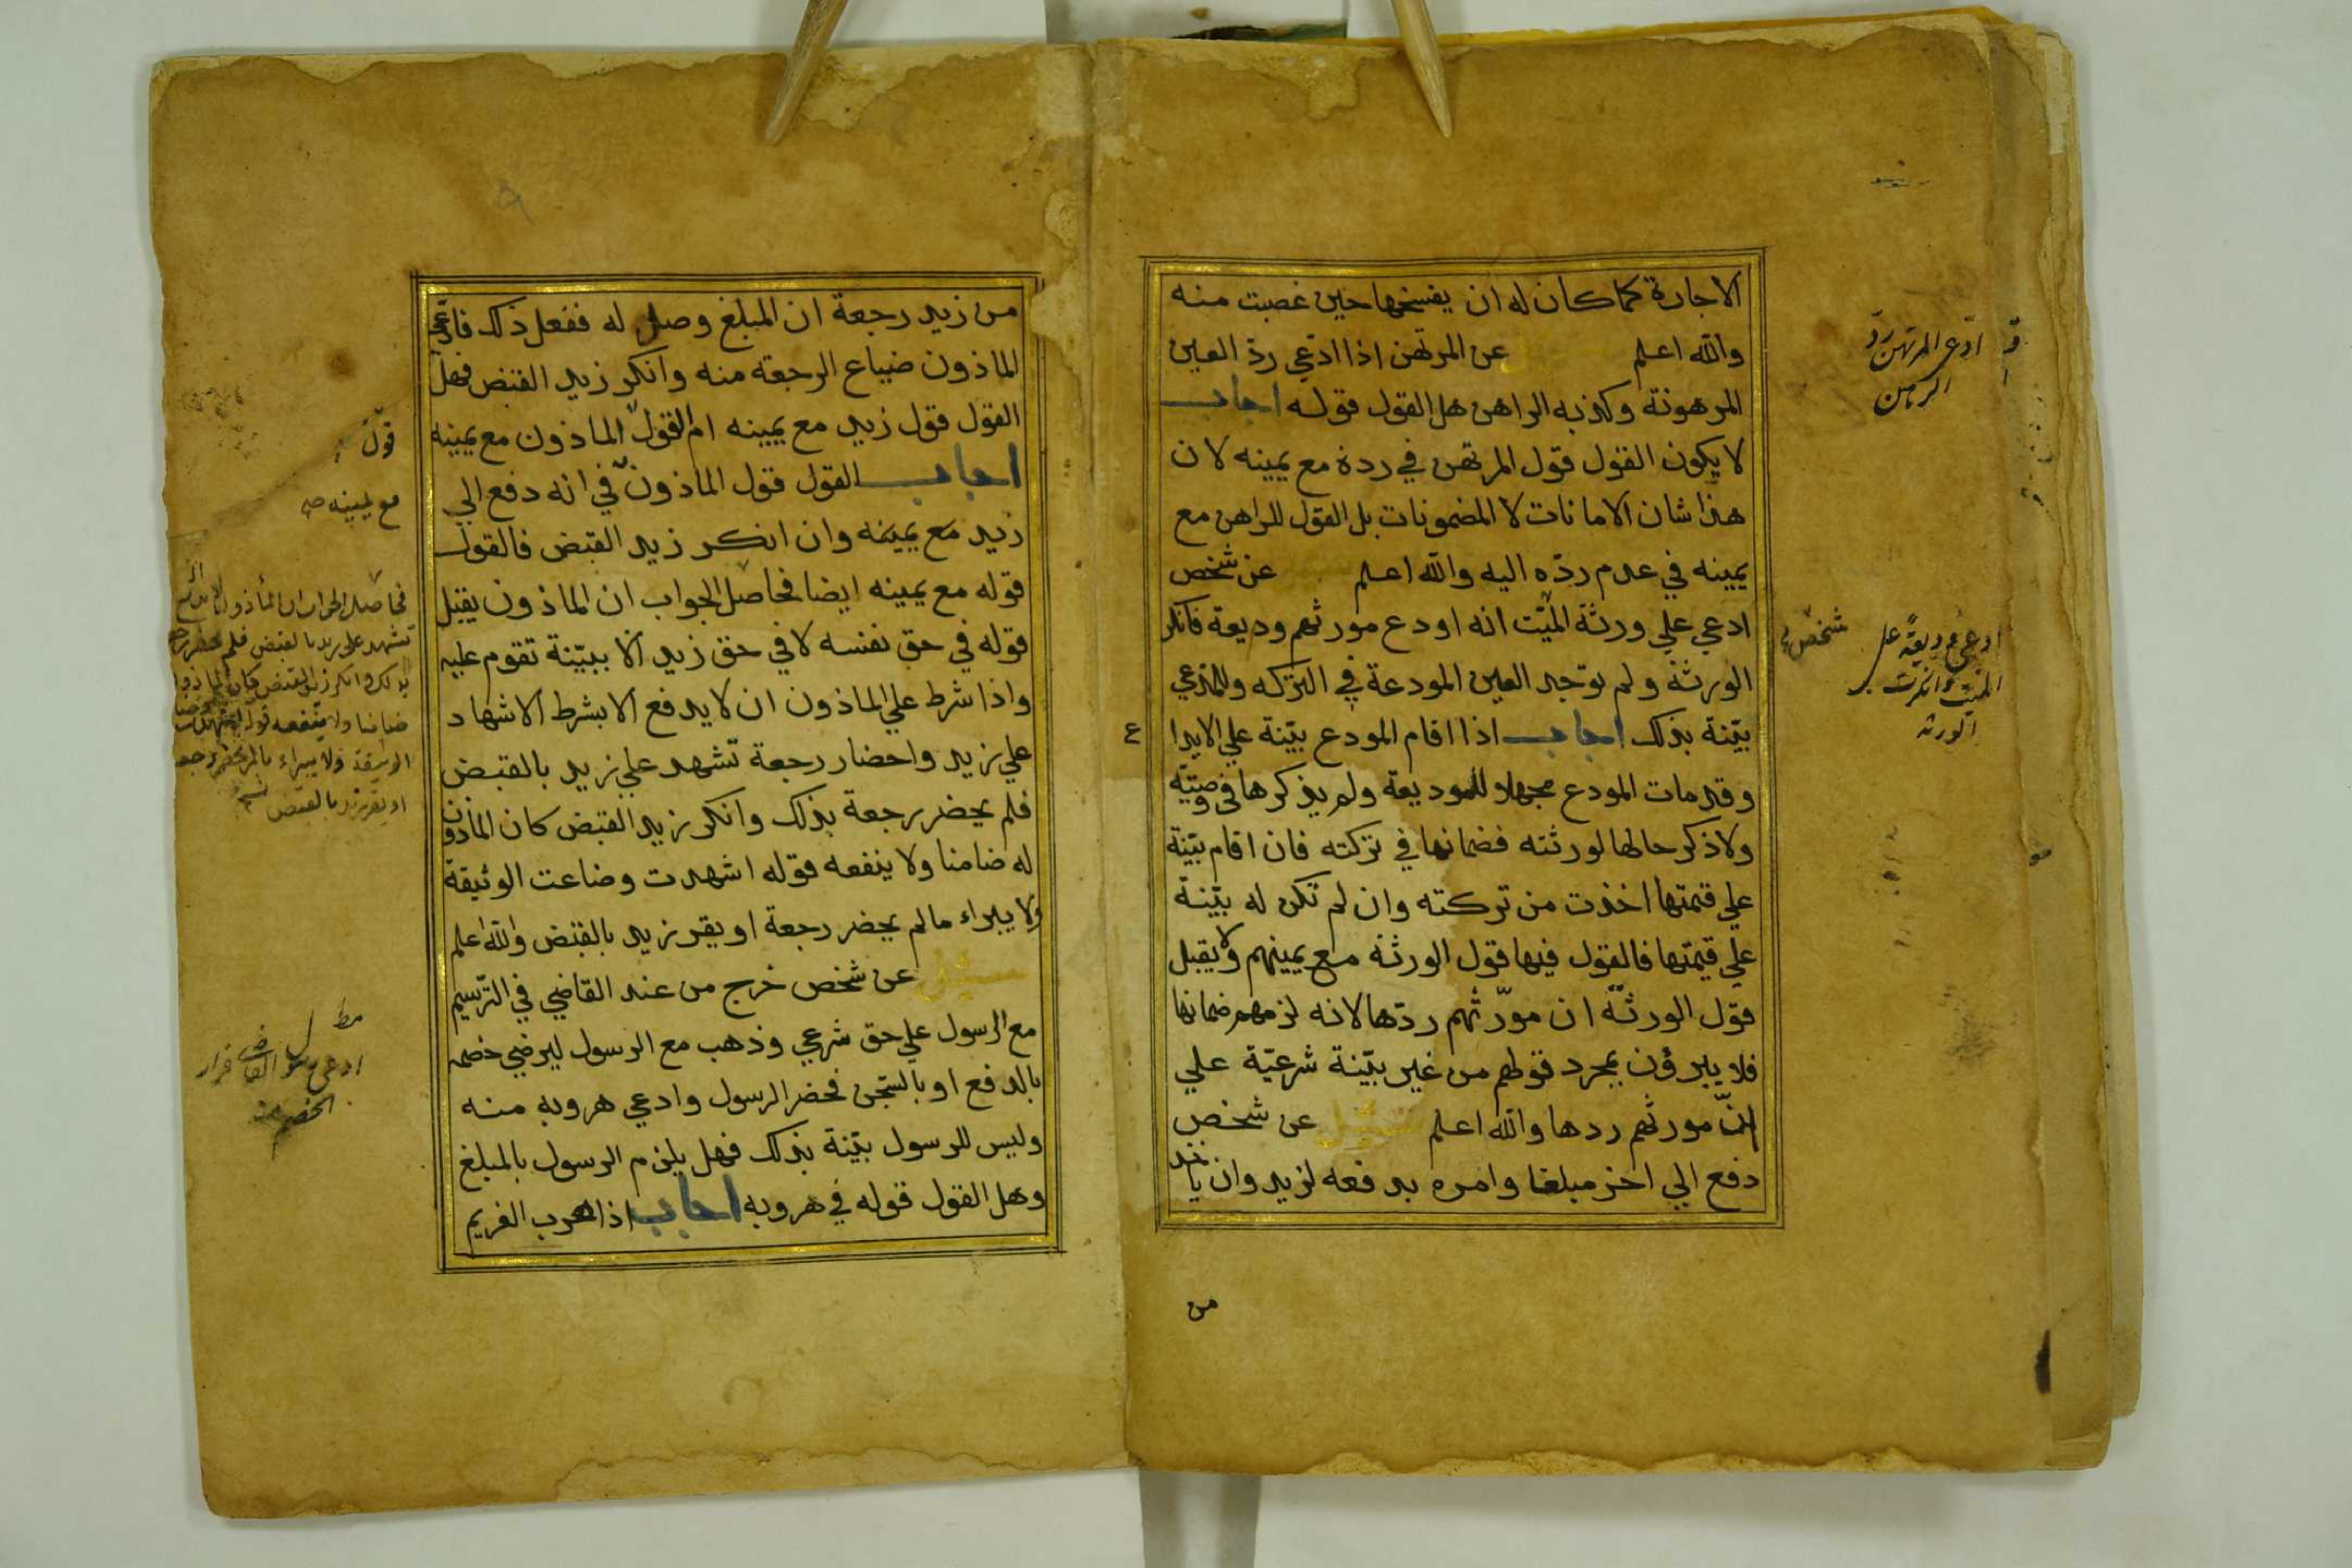 الاجارة كما كان له ان يفسخها حين غصبت منه
والله اعلم سئل عن المرتهن اذا ادعي ردّ العين
المرهونة وكذبه الراهن هل القول قوله اجاب
لا يكون القول قول المرتهن في رده مع يمينه لان
هذا شان الامانات لا المضمونات بل القول للراهن مع
يمينه في عدم ردّه اليه والله اعلم سئل عن شخص
ادعي علي ورثة الميّت انه اودع مورثهم وديعة فانكر
الورثة ولم توجد العين المودعة في التركه وللمدعي
بيّنة بذلك اجاب اذا اقام المودع بيّنة علي الايدا
ع
وقد مات المودع مجهلا للوديعة ولم يذكرها في وصيّته
ولا ذكر حالها لورثته فضمانها في تركته فان اقام بيّنة
علي قيمتها اخذت من تركته وان لم تكن له بيّنة
علي قيمتها فالقول فيها قول الورثة مع يمينهم ولا يقبل
قول الورثة ان مورّثهم ردّها لانه لزمهم ضمانها
فلا يبرؤن بمجرد قولهم من غير بيّنة شرعيّة علي
انّ مورثهم ردها والله اعلم سئل عن شخص
دفع الي اخر مبلغا وامره بدفعه لزيد وان ياخذ
من
ادّعي المرتهن ردّ
الرهن
شخص
ادعي وديعةً على
الميّت وانكرت
الورثه
من زيد رجعة ان المبلغ وصل له ففعل ذلك فادّعي
الماذون ضياع الرجعة منه وانكر زيد القبض فهل
القول قول زيد مع يمينه ام القول الماذون مع يمينه
اجاب القول قول الماذون في انه دفع الي
زيد مع يمينه وان انكر زيد القبض فالقول
قوله مع يمينه ايضا فحاصل الجواب ان الماذون يقبل
قوله في حق نفسه لا في حق زيد الا ببيّنة تقوم عليه
واذا شرط علي الماذون ان لا يدفع الا بشرط الاشهاد
علي زيد واحضار رجعة تشهد علي زيد بالقبض
فلم يحضر رجعة بذلك وانكر زيد القبض كان الماذون
له ضامنا ولا ينفعه قوله اشهدت وضاعت الوثيقة
ولا يبراء ما لم يحضر رجعة او يقر زيد بالقبض والله اعلم
سئل عن شخص خرج من عند القاضي في الترسيم
مع الرسول علي حق شرعي وذهب مع الرسول ليرضي خصمه
بالدفع او بالسّجن فحضر الرسول وادعي هروبه منه
وليس للرسول بيّنة بذلك فهل يلزم الرسول بالمبلغ
وهل القول قوله في هروبه اجاب اذا هرب الغريم
قول
مع يمينه صح
فحاصل الجواب ان المأذون
تشهد على زيد بالقبض فلم يحضر
بذلك وانكر زيد القبض كان الماذون
ضامنا ولا ينفعه قوله اشهدت
الوثيقة ولا يبراء ما لم يحضر رجعة
او يقر زيد بالقبض
مطلب
ادعى رسول القاضي فرار
الخصم منه